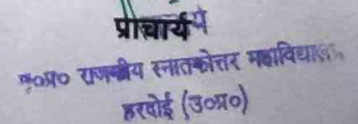 प्राचार्य
के०प्र० राजकीय स्नातकोत्तर महाविद्यालय
हरदोई (उ०प्र०)